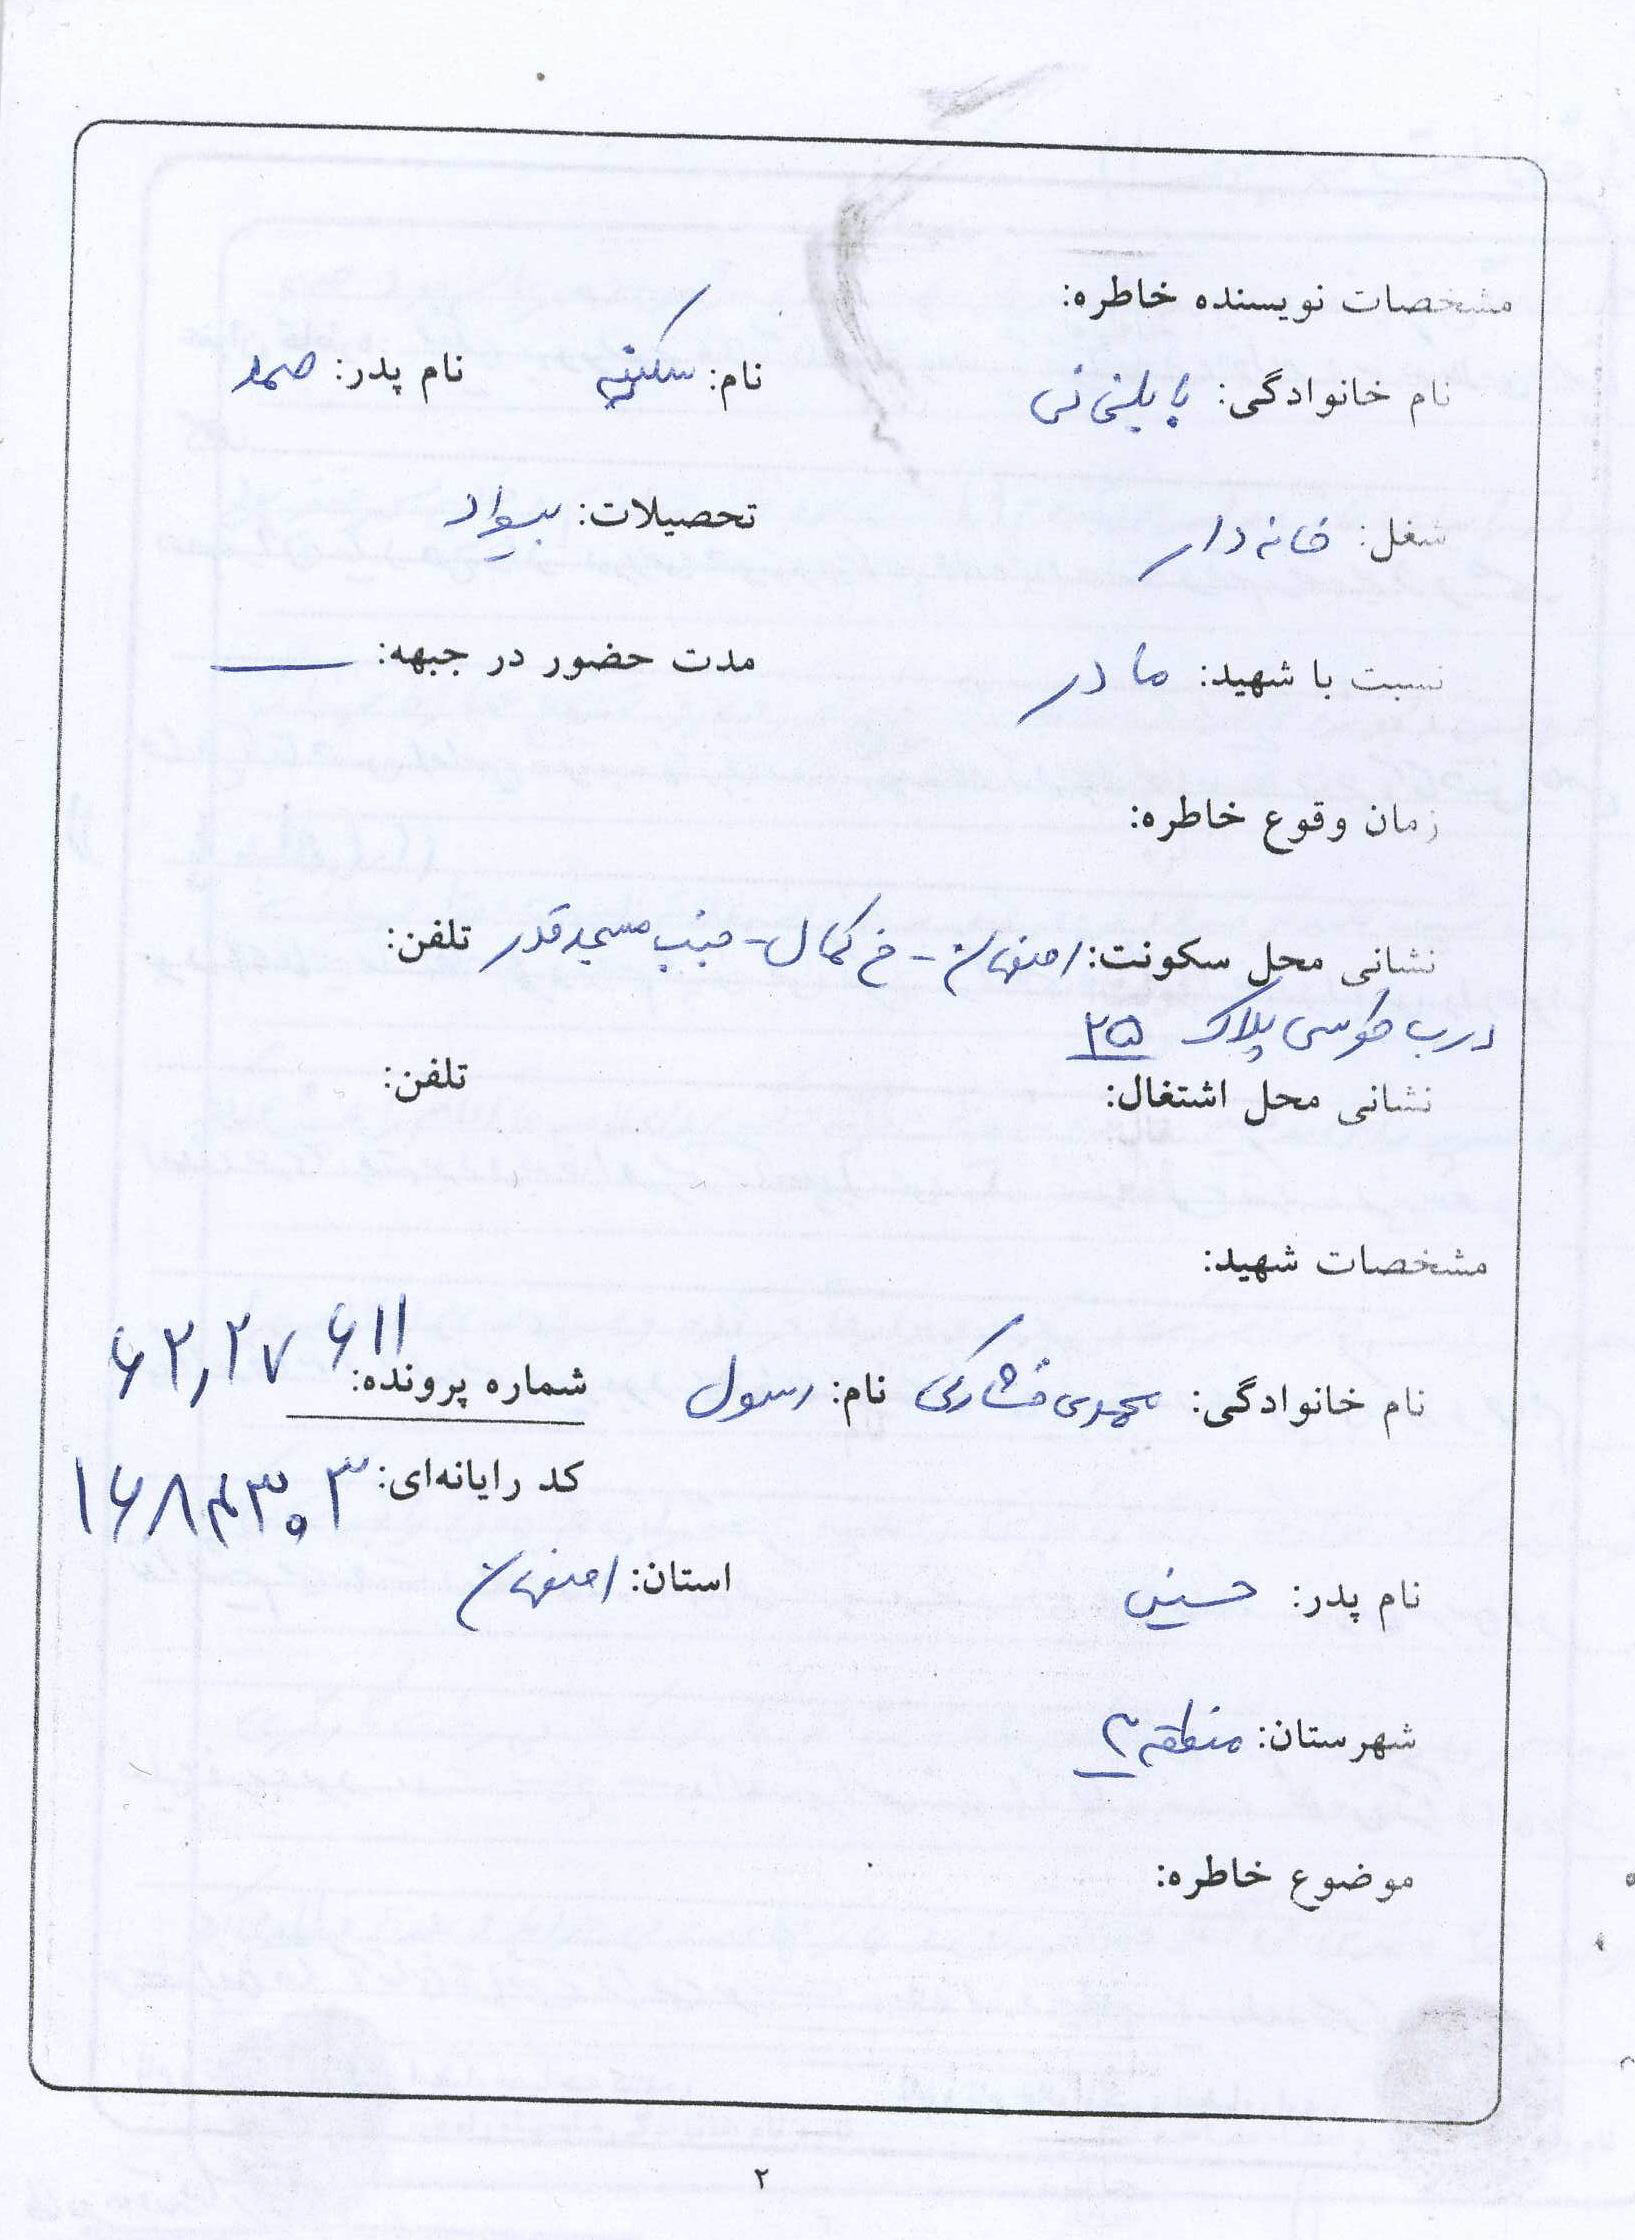 مشخصات نویسنده خاطره:
نام خانوادگی: نام: سکینه نام پدر: صمد
شغل: خانه دار تحصیلات: بیسواد
نسبت با شهید: مادر مدت حضور در جبهه: ــــ
زمان وقوع خاطره:
نشانی محل سکونت: اصفهان - خ کمال - جنب مسجد قدر تلفن:
درب طوسی پلاک ۲۵
نشانی محل اشتغال: تلفن:
مشخصات شهید:
نام خانوادگی: محمدی فشارکی نام: رسول شماره پرونده: ۶۲٫۲۷۶۱۱
کد رایانه‌ای: ۱۶۸۴۳۰۳
نام پدر: حسین استان: اصفهان
شهرستان: منطقه ۲
موضوع خاطره:
۲